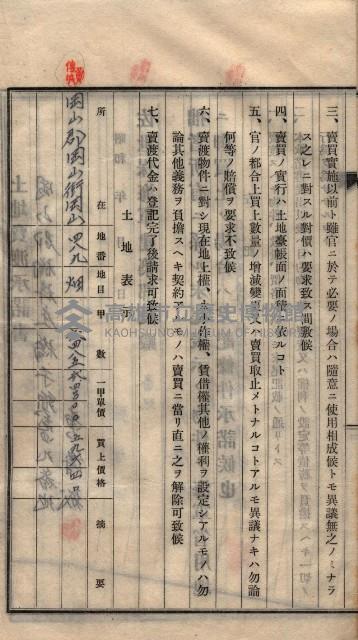 三、賣買實施以前ト雖官ニ於テ必要ノ場合ハ隨意ニ使用相成候トモ異議無之ノミナラ
ス之レニ對スル對價ハ要求致ス間敷候
四、賣買ノ實行ハ土地臺帳面ノ面積ニ依ルコト
五、官ノ都合上買上數量ノ增減變更又ハ賣買取止メトナルコトアルモ異議ナキハ勿論
何等ノ賠償ヲ要求不致候
六、賣渡物件ニ對シ現在地上權、永小作權、賃借權其他ノ權利ヲ設定シアルモノハ勿
論其他義務ヲ負擔スヘキ契約アルモノハ賣買ニ當リ直ニ之ヲ解除可致候
七、賣渡代金ハ登記完了後請求可致候
土地表示
所在 地番 地目 甲數 一甲單價 買上價格 摘要
岡山郡岡山街岡山 四八九 畑
高雄市立歷史博物館
KAOHSIUNG MUSEUM OF HISTORY